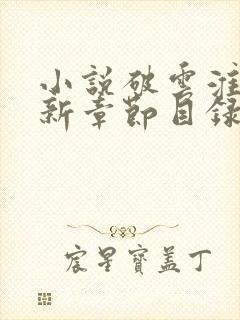 小說破雲淮
新章節目錄
宸星寶蓋丁